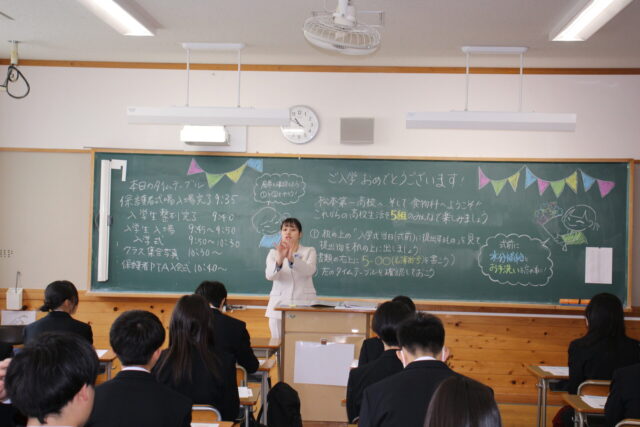 本日のタイムテーブル
保護者式場入場完了 9:35
入学生整列完了 9:40
入学生入場 9:45~9:50
入学式 9:50~10:30
クラス集合写真 10:30~
保護者PTA入会式 10:40~
ご入学おめでとうございます!
松本第一高校へ、そして食物科へようこそ
これからの高校生活を5組のみんなで楽しみましょう
① 机の上の「入学式当日(式前)に提出するもの」を見て
提出物を机の上に出しましょう
書類の右上に、5-00
左のタイムテーブルを確認しておこう
式前に
水分補給
お手洗い